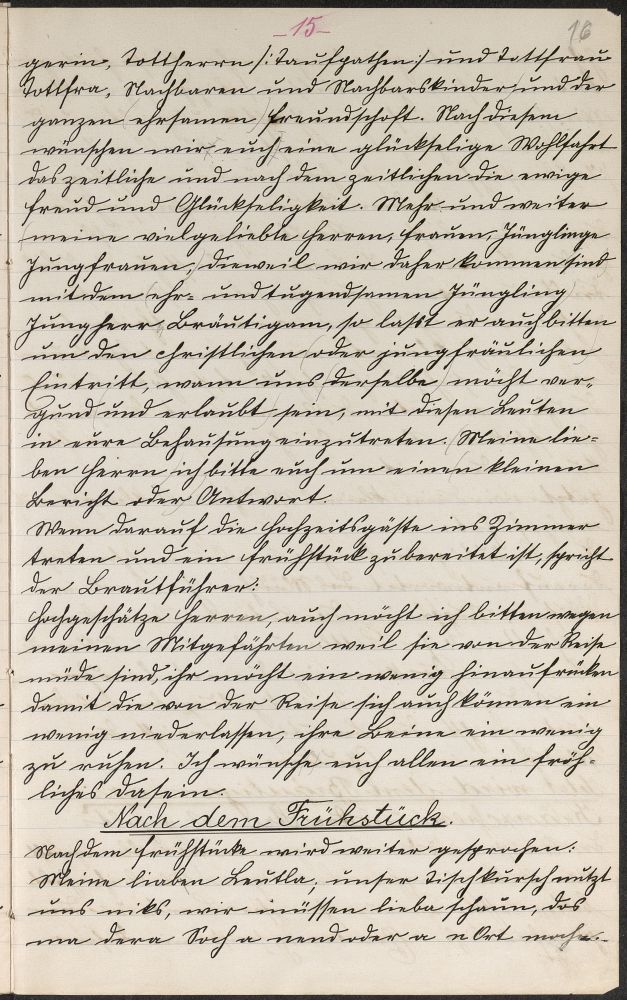 -15-
16
gerin, Tottherrn /: Taufpathen :/ und Tottfrau
Tottfra, Nachbaren und Nachbarskinder und der
ganzen ehrsamen Freundschaft. Nach diesem
wünschen wir euch eine glückselige Wohlfahrt
das zeitliche und nach dem zeitlichen die ewige
Freud und Glückseligkeit. Mehr und weiter
meine vielgeliebte Herren, Frauen, Jünglinge
Jungfrauen, dieweil wir daher kommen sind
mit dem ehr- und tugendsamen Jüngling
Jungherr Bräutigam, so lasst er auch bitten
um den christlichen oder jungfräulichen
Eintritt, wann uns derselbe möcht ver-
gund und erlaubt sein, mit diesen Leuten
in eure Behausung einzutreten. Meine lie-
ben Herrn ich bitte euch um einen kleinen
Bericht oder Antwort.
Wenn darauf die Hochzeitsgäste ins Zimmer
treten und ein Frühstück zubereitet ist, spricht
der Brautführer:
Hochgeschätze Herren, auch möcht ich bitten wegen
meinen Mitgefährten weil sie von der Reise
müde sind, ihr möcht ein wenig hinaufrücken
damit die von der Reise sich auch können ein
wenig niederlassen, ihre Beine ein wenig
zu ruhen. Ich wünsche euch allen ein fröh-
liches Dasein.
Nach dem Frühstück.
Nach dem Frühstücke wird weiter gesprochen:
Meine liaben Leutla, unser Tischkursch nutzt
uns niks, wir müssen lieba schaun, das
ma dera Soch a nend oder a n Ort moche.